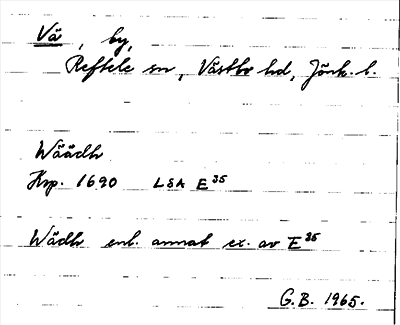 Vä, by,
Reftele sn, Västbo hd, Jönk. l.
Wäädh
Krp. 1690 LSA E³⁵
Wädh enl. annat ex. av E³⁵
G.B. 1965.